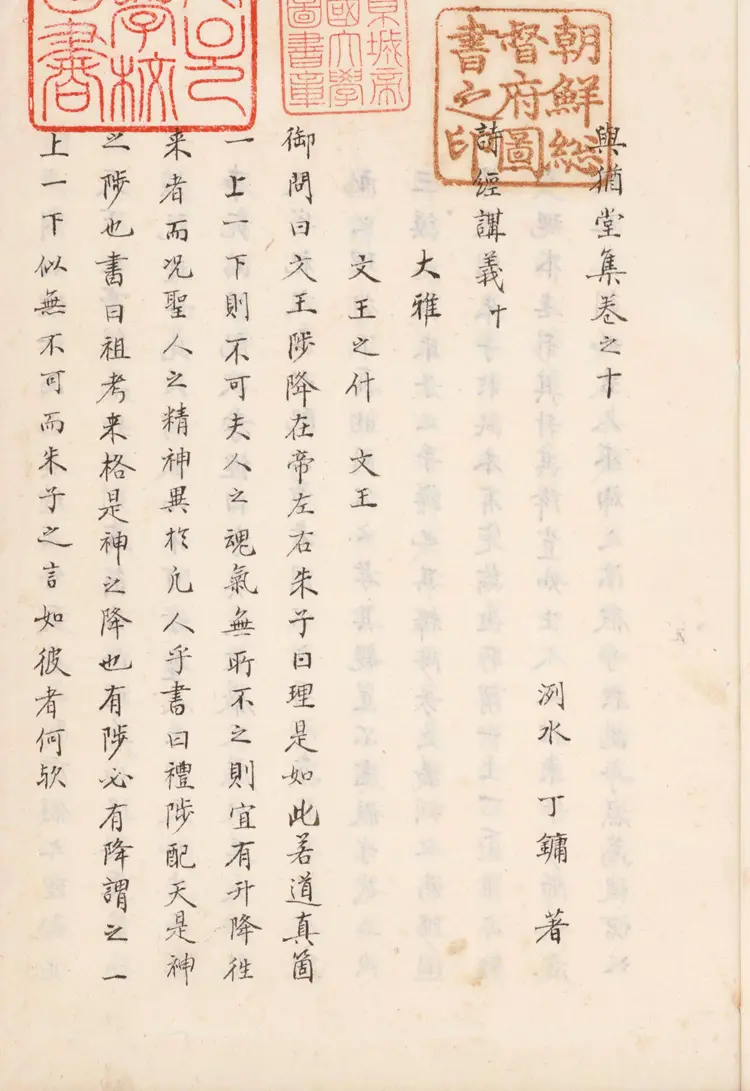 朝鮮総
督府圖
書之印
京城帝
國大學
圖書章
與猶堂集卷之十
洌水丁鏞著
詩經講義
大雅
文王之什 文王
御問曰文王陟降在帝左右朱子曰理是如此若道真箇
一上一下則不可夫人之魂氣無所不之則宜有升降徃
来者而况聖人之精神異於凡人乎書曰禮陟配天是神
之陟也書曰祖考来格是神之降也有陟必有降謂之一
上一下似無不可而朱子之言如彼者何欤